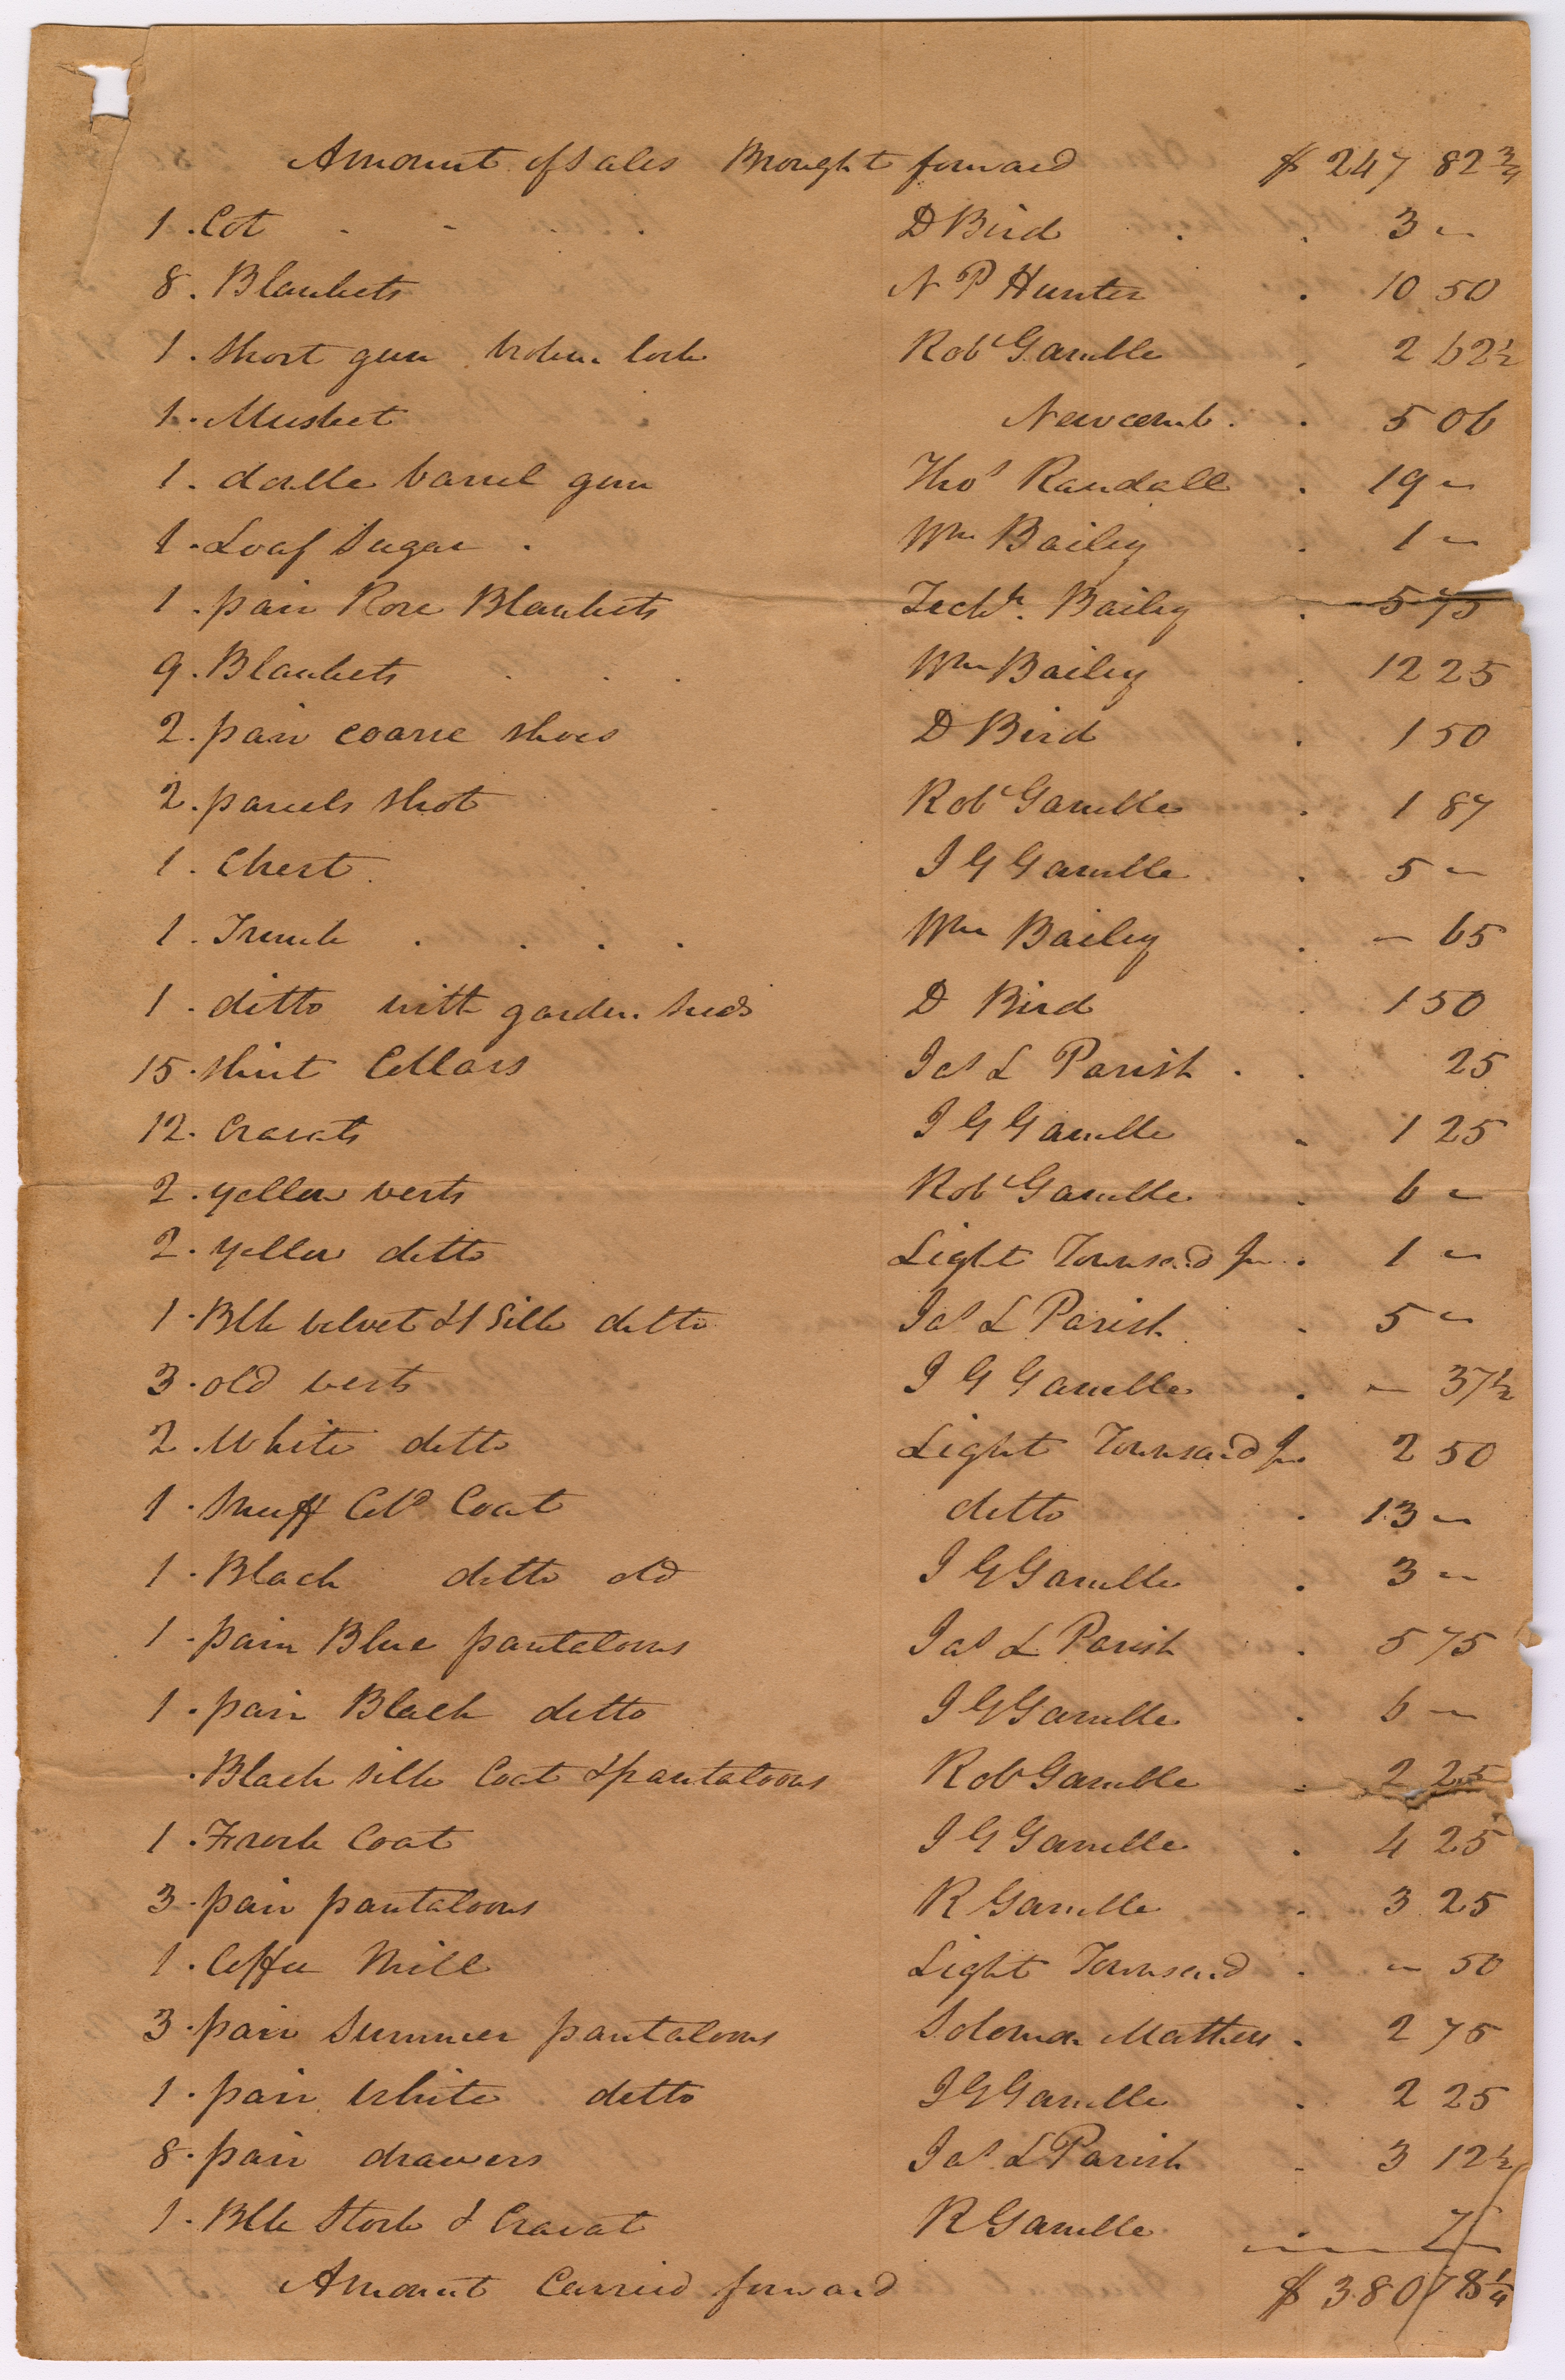 Amount of Sales Brought forward $ 247 82 3/4
1. Cot D Bird 3 "
8. Blankets N P Hunter 10 50
1. Short gun broken lock Robt Gamble 2 62 1/2
1. Musket Newcomb 5 06
1. double barrel gun Thos Randall 19 "
1. Loaf Sugar Wm Bailey 1 "
1. pair Rose Blankets Zechh. Bailey 5 75
9. Blankets Wm Bailey 12 25
2. pair coarse shoes D Bird 1 50
2. parcels shot Robt Gamble 1 87
1. Chest J G Gamble 5 "
1. Trunk Wm Bailey — 65
1. ditto with garden seeds D Bird 1 50
15. Shirt Collars Jas L Parish 25
12. Cravats J G Gamble 1 25
2. yellow vests Robt Gamble 6 "
2. yellow ditto Light Townsend Jnr 1 "
1. Blk velvet & 1 Silk ditto Jas L Parish 5 "
3. old vests J G Gamble — 37 1/2
2. White ditto Light Townsend Jnr 2 50
1. Snuff Cold Coat ditto 13 "
1. Black ditto old J G Gamble 3 "
1. pair Blue pantaloons Jas L Parish 5 75
1. pair Black ditto J G Gamble 6 "
. Black silk Coat & pantaloons Robt Gamble 2 25
1. Frock Coat J G Gamble 4 25
3. pair pantaloons R Gamble 3 25
1. Coffee Mill Light Townsend " 50
3. pair Summer pantaloons Soloman Mathers 2 75
1. pair white ditto J G Gamble 2 25
8. pair drawers Jas L Parish 3 12 1/2
1. Blk Stock & Cravat R Gamble 75
Amount Carried forward $ 380 78 1/4